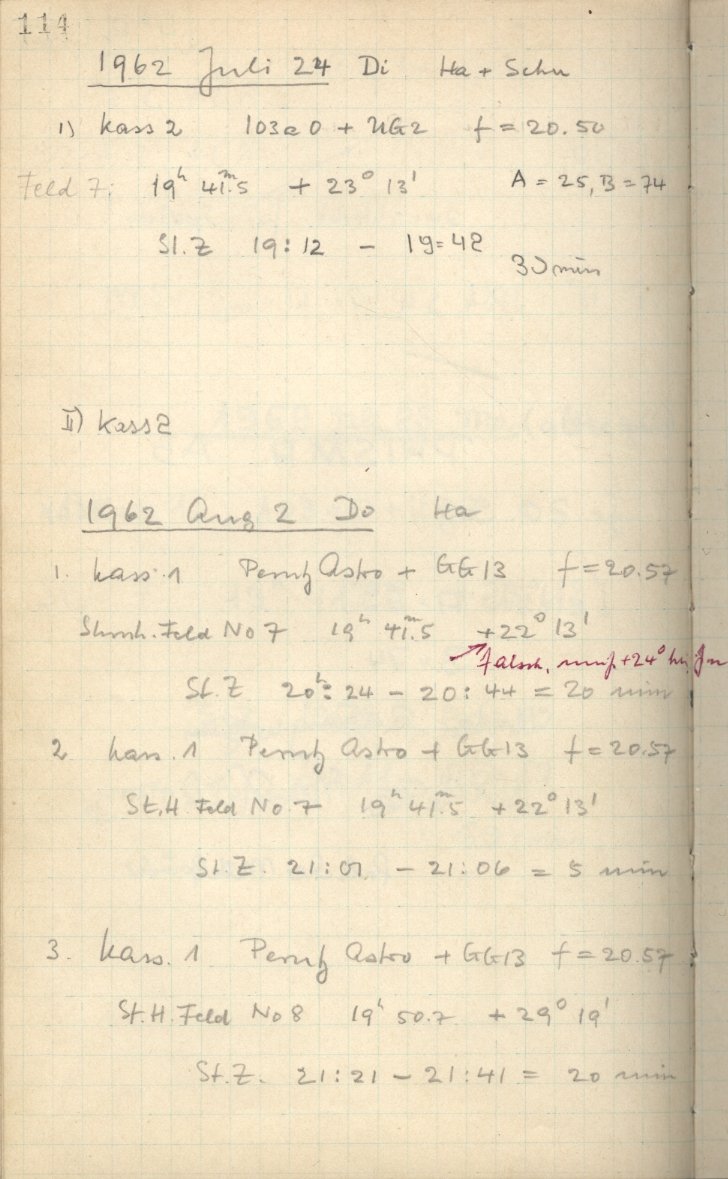 114
1962 Juli 24 Di Ha + Schu
1) Kass 2 103a0 + UG2 f = 20.50
Feld 7: 19h 41m.5 + 23° 13' A = 25, B = 74
St.Z 19:12 - 19:42
30 min
II) Kass 2
1962 Aug 2 Do Ha
1. Kass. 1 Perutz Astro + GG13 f = 20.57
Feld No 7 19h 41m.5 +22° 13'
Falsch, muß +24°
St.Z 20h:24 - 20:44 = 20 min
2 Kass. 1 Perutz Astro + GG13 f = 20.57
St.H. Feld No. 7 19h 41m.5 +22° 13'
St.Z. 21:01 - 21:06 = 5 min
3. Kass. 1 Perutz Astro + GG13 f = 20.57
St.H. Feld No 8 19h 50.7 +29° 19'
St.Z. 21:21 - 21:41 = 20 min